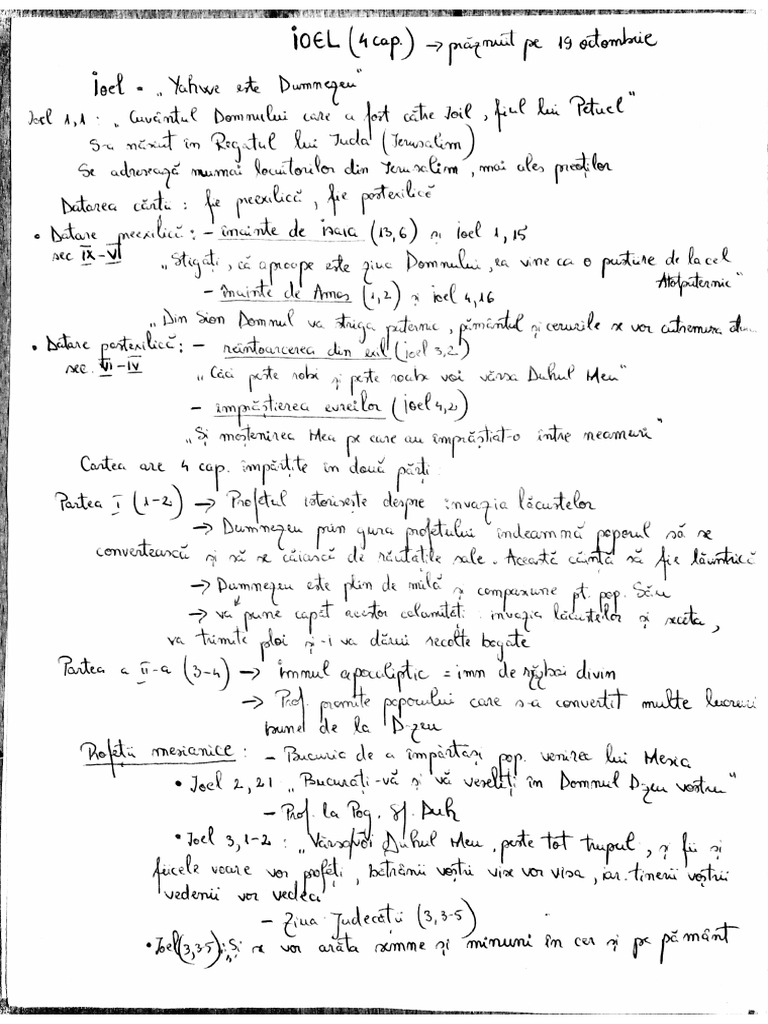 IOEL (4 cap.) → prăznuit pe 19 octombrie
Ioel - „Yahwe este Dumnezeu"
Ioel 1,1 : „Cuvântul Domnului care a fost către Ioil, fiul lui Petuel"
S-a născut în Regatul lui Iuda (Ierusalim)
Se adresează numai locuitorilor din Ierusalim, mai ales preoților
Datarea cărții : fie preexilică, fie postexilică
• Datare preexilică : - înainte de Isaia (13,6) și Ioel 1,15
sec IX-VI
„Strigați, că aproape este ziua Domnului, ea vine ca o pustiire de la cel
Atotputernic"
- înainte de Amos (1,2) și Ioel 4,16
„Din Sion Domnul va striga puternic, pământul și cerurile se vor cutremura
• Datare postexilică : - reântoarcerea din exil (Ioel 3,2)
sec. VI-IV
„Căci peste robi și peste roabe voi vărsa Duhul Meu"
- împrăștierea evreilor (Ioel 4,2)
„Și moștenirea Mea pe care au împrăștiat-o între neamuri"
Cartea are 4 cap. împărțite în două părți :
Partea I (1-2) → Profetul istorisește despre invazia lăcustelor
→ Dumnezeu prin gura profetului îndeamnă poporul să se
convertească și să se căiască de răutățile sale. Această căință să fie lăuntrică
→ Dumnezeu este plin de milă și compasiune pt. pop. Său
→ va pune capăt acestor calamități : invazia lăcustelor și seceta,
va trimite ploi și-i va dărui recolte bogate
Partea a II-a (3-4) → imnul apocaliptic = imn de război divin
→ Prof. promite poporului care s-a convertit multe lucruri
bune de la D-zeu
Profeții mesianice : - Bucurie de a împărtăși pop. venirea lui Mesia
• Ioel 2,21 „Bucurați-vă și vă veseliți în Domnul D-zeu vostru"
- Prof. la Pog. Sf. Duh
• Ioel 3,1-2 : „Vărsa-voi Duhul Meu, peste tot trupul, și fii și
fiicele voastre vor profeți, bătrânii voștri vise vor visa, iar tinerii voștrii
vedenii vor vedea
- Ziua Judecății (3,3-5)
• Ioel (3,3-5) : „Și se vor arăta semne și minuni în cer și pe pământ